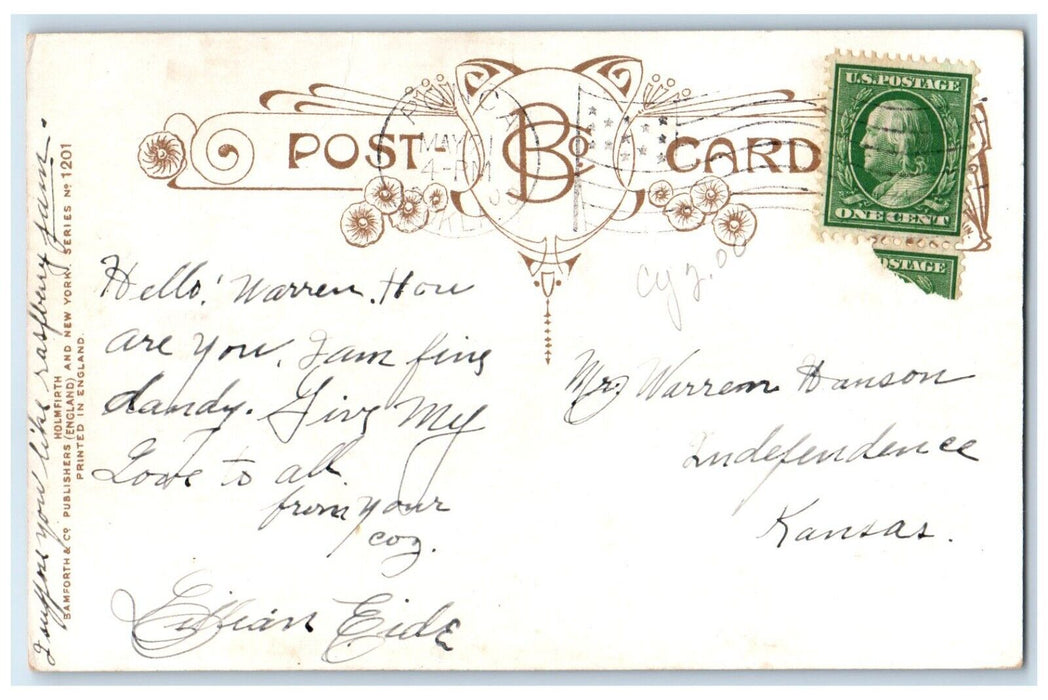 POST CARD
BCo
MAY
4-PM
U.S. POSTAGE
ONE CENT
POSTAGE
Hello! Warren. How
are you. I am fine
dandy. Give My
Love to all.
from your
coz.
Lillian Eide
Mr. Warren Hanson
Independence
Kansas.
I suppose you like raspberry jam.
BAMFORTH & CO PUBLISHERS (ENGLAND) AND NEW YORK. SERIES No 1201
HOLMFIRTH
PRINTED IN ENGLAND.